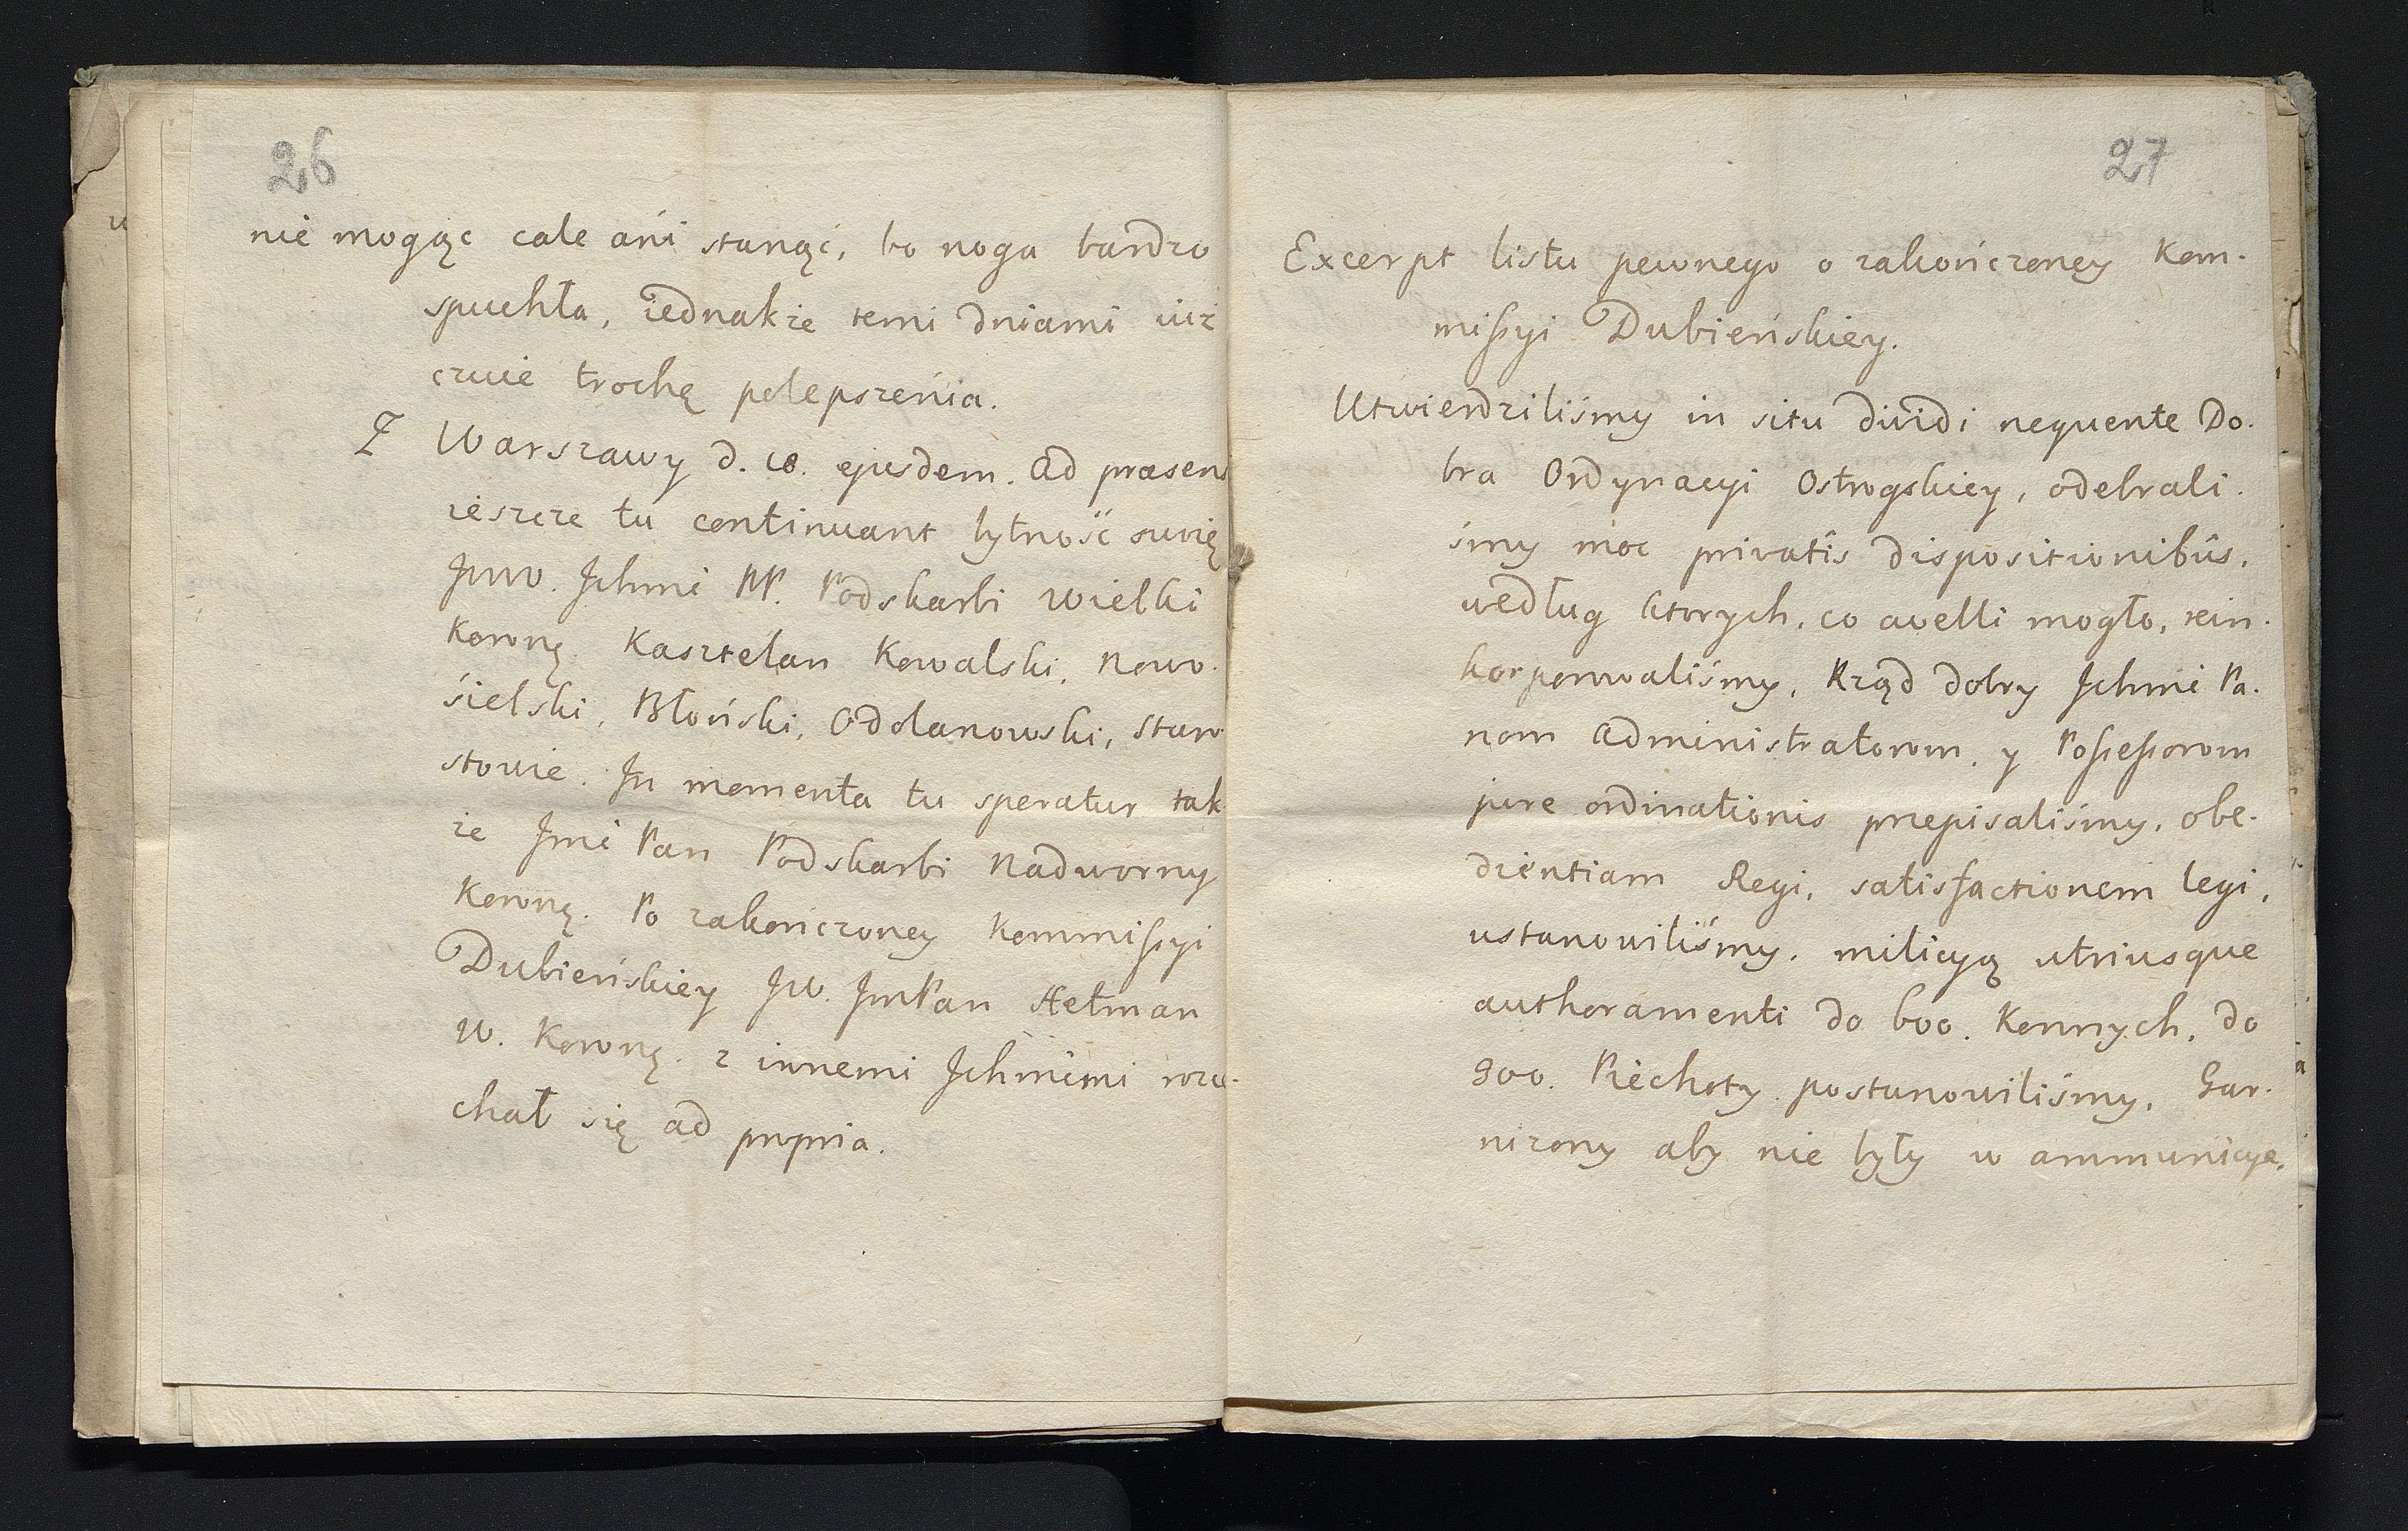 26
nie mogąc cale ani stanąć, bo noga bardzo
spuchła, iednakże temi dniami iuż
czuie trochę polepszenia.
Z Warszawy d. 10. ejusdem. Ad præsens
ieszcze tu continuant bytność swoię
JWW. Ichmć PP. Podskarbi Wielki
Koronę. Kasztelan Kowalski, Nowo.
sielski, Błoński, Odolanowski, Staro
stowie. In momenta tu speratur tak
że Jmć Pan Podskarbi Nadworny
Koronę. Po zakończoney Kommissyi
Dubieńskiey JW. JmPan Hetman
W. Koronę. z innemi Ichmćmi rozie-
chał się ad propria.
27
Excerpt listu pewnego o zakończoney Kom.
missyi Dubieńskiey.
Utwierdziliśmy in situ dividi nequente Do.
bra Ordynacyi Ostrogskiey, odebrali.
śmy moc privatîs dispositionibûs,
według ktorych, co avelli mogło, rein.
korporowaliśmy, Rząd dobry Ichmć Pa.
nom Administratorom, y Possessorom
jure ordinationis przepisaliśmy, obe.
dientiam Regi, satisfactionem legi,
ustanowiliśmy, milicyą utriusque
authoramenti do 600. Konnych, do
900. Piechoty postanowiliśmy, Gar.
nizony aby nie były w ammunicye,